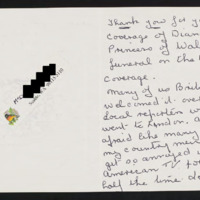 Thank you for yo
coverage of Dian
Princess of Wal
funeral on the
coverage.
Many of us Brit
welcomed it over
local reporters w
went to London.
afraid like many
my country men
get so annoyed
American TV fo
half the time, do